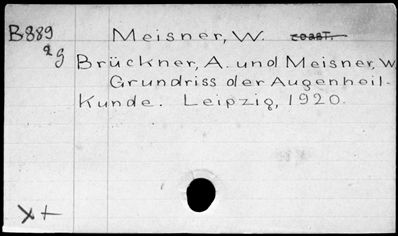 B889 Meisner, W. coaut.
2g Brückner, A. und Meisner, W
Grundriss der Augenheil-
Kunde. Leipzig, 1920.
X+